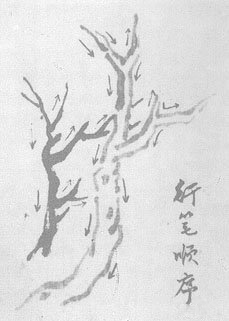 行笔顺序